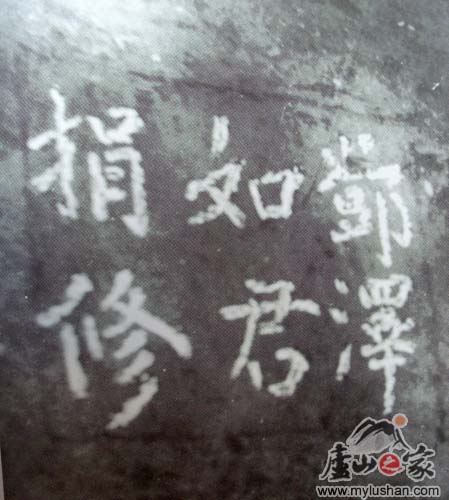 鄧澤
如君
捐修
廬山之家
www.mylushan.com